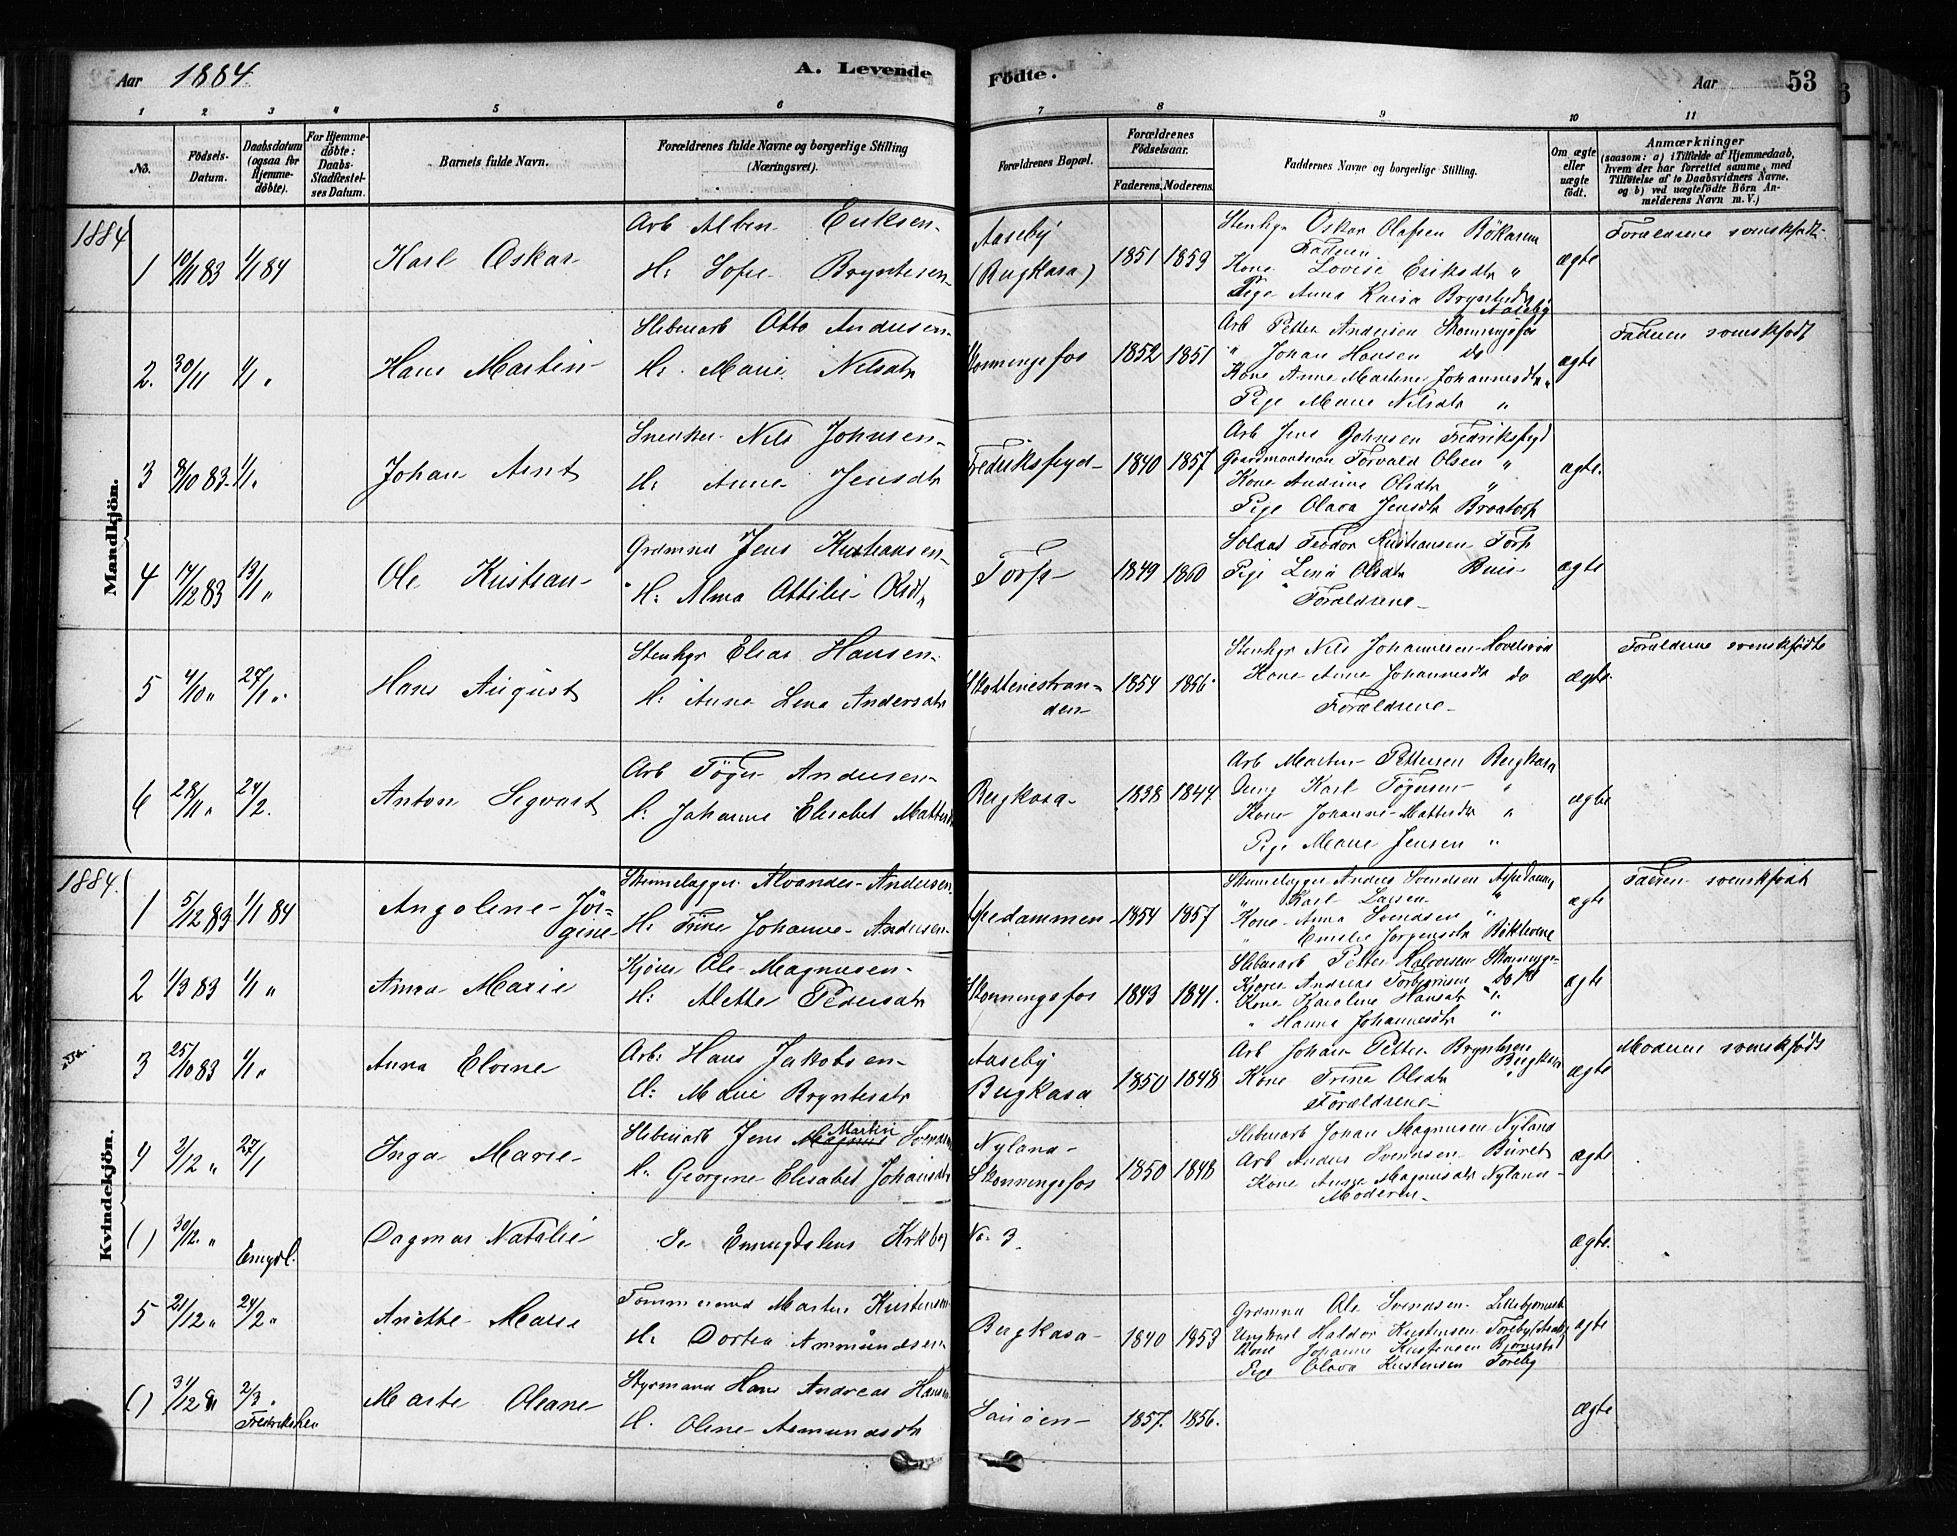 Aar 1884 A. Levende Fødte. Aar 53
1 2 3 4 5 6 7 8 9 10 11
No.
Fødsels-Datum.
Daabsdatum (ogsaa for Hjemmedøbte).
For Hjemmedøbte: Daabs-Stadfæstelses Datum.
Barnets fulde Navn.
Forældrenes fulde Navne og borgerlige Stilling (Næringsvei).
Forældrenes Bopæl.
Forældrenes Fødselsaar.
Faderens. Moderens.
Faddernes Navne og borgerlige Stilling.
Om ægte eller uægte født.
Anmærkninger (saasom: a) i Tilfælde af Hjemmedaab, hvem der har forrettet samme, med Tilføielse af to Daabsvidners Navne, og b) ved uægtefødte Børn Anmelderens Navn m. V.)
Mandkjøn.
1884
1 10/11 83 1/1 84 Karl Oskar
Arb Alben Eriksen
H: Sofie Bryntesen
Aaseby (Bergkasa) 1851 1859
Stenhgr Oskar Olafsen Bøkaren
Faderen
Kone Lovise Eriksdtr "
Pige Anna Kaisa Bryntesdtr Aaseby
ægte
Forældrene svenskfødte
2. 30/11 1/1 " Hans Martin
Sliberiarb Otto Andersen
H: Marie Nilsdtr
Skonningsfos 1852 1851
Arb Petter Andersen Skonningsfos
" Johan Hansen do
Kone Anne Martine Johannesdtr "
Pige Marie Nilsdtr "
ægte
Faderen svenskfødt
3 8/10 83 1/1 " Johan Arnt
Snedker Nils Johnsen
H: Anne Jensdtr
Fredriksfryd 1840 1857
Arb Jens Johnsen Fredriksfryd
Gaardmandssøn Torvald Olsen "
Kone Andrine Olsdtr "
Pige Olava Jensdtr Braatorp
ægte.
4 17/12 83 13/1 " Ole Kristian
Grdmnd Jens Kristiansen
H: Alma Ottilie Olsdtr
Torp 1849 1860
Soldat Teodor Kristiansen Torp
Pige Lina Olsdtr Buer
Forældrene
ægte
5 4/10 " 27/1 " Hans August
Stenhgr Elias Hansen
H: Anna Lena Andersdtr
Skottenestranden 1854 1856
Stenhgr Nils Johannesen
Kone Anne Johannesdtr do
Forældrene
ægte
Forældrene svenskfødte
6 28/11 " 24/2. Anton Sigvart
Arb Tøger Andersen
H: Johanne Elisabet Mattesdtr
Bergkasa 1838 1844
Arb Martin Pettersen Bergkasa
Ung Karl Tøgersen "
Kone Johanne Mattesdtr "
Pige Marie Jensen "
ægte
Kvindekjøn.
1884.
1 5/12 83 1/1 84 Angoline Jørgine
Skinnelægger Alvander Andersen
H: Trine Johanne Andersen
Aspedammen 1854 1857
Skinnelægger Andres Svendsen Aspedammen
" Karl Larsen "
Kone Anna Svendsen "
" Emelie Jørgensdtr
ægte
Faderen svenskfødt
2 1/3 83 1/1 " Anna Marie
Kjører Ole Magnusen
H: Alette Pedersdtr
Skonningsfos 1843 1841.
Sliberiarb Petter Halvorsen Skonningsfos
Kjører Andreas Torbjørnsen do
Kone Karoline Hansdtr "
" Hanna Johannesdtr "
ægte
3 25/10 83 1/1 " Anna Elvine
Arb: Hans Jakobsen
H: Marie Bryntesdtr
Aaseby Bergkasa 1850 1848
Arb Johan Petter Bryntesen Bergkasa
Kone Trine Olsdtr "
Forældrene
ægte
Moderen svenskfødt
4 2/12 " 27/1 Inga Marie
Sliberiarb Jens Magnus Martin Svendsen
H: Georgine Elisabet Johansdtr
Nyland Skonningsfos 1850 1848
Sliberiarb Johan Magnusen Nyland
Arb Anders Svendsen Buret
Kone Anne Magnusdtr Nyland
Moderen
ægte
() 30/12 " Emgdl. Dagmar Natalie
Se Enningdalens Krkbog No. 3.
ægte.
5 21/12 " 24/2 " Anette Marie
Tømmermand Martin Kristensen
H: Dortea Ammundsen
Bergkasa 1840 1853
Grdmnd Ole Svendsen
Ungkarl Haldor Kristensen Toreby
Kone Johanne Kristensen Bjørnstad
Pige Olava Kristensen Toreby
ægte
() 31/12 2/3 " Fredrikshen Marte Oleane
Styrmand Hans Andreas Hansen
H. Oline Asmundsdtr
Sauøen 1857. 1856.
ægte